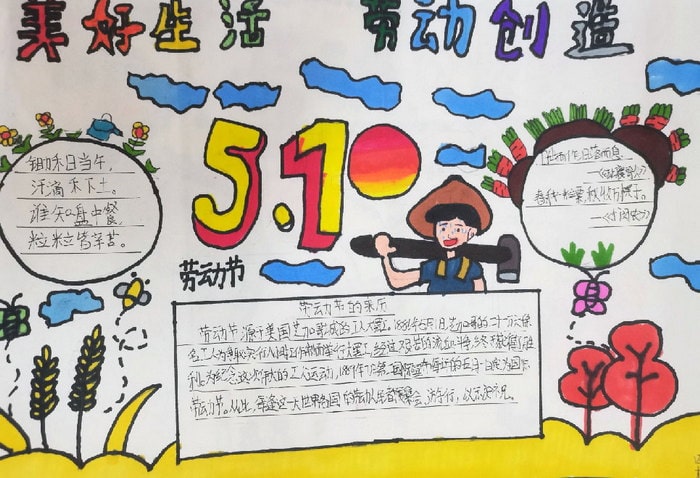 美好生活 劳动创造
5.1
劳动节
锄禾日当午,
汗滴禾下土。
谁知盘中餐
粒粒皆辛苦。
作日落而息
春种一粒粟,秋收万颗子。
劳动节的来历
劳动节源于美国芝加哥城的工人大罢工,1886年5月1日,芝加哥的二十万余
名工人为争取实行八小时工作制而举行大罢工,经过艰苦的流血斗争,终于获得了胜
利。为纪念这次伟大的工人运动,1889年7月第二国际宣布将每年的五月一日定为国际
劳动节。从此,每逢这一天世界各国的劳动人民都要集会、游行,以示庆祝。